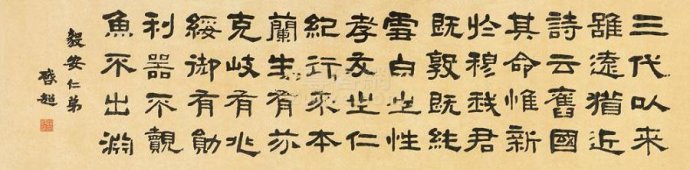 三代以來
雖遠猶近
詩云舊國
其命惟新
於穆我君
既敦既純
雪白之性
孝友之仁
紀行來本
蘭生有芬
克岐有兆
綏御有勛
利器不覿
魚不出淵
毅安仁弟
啓超